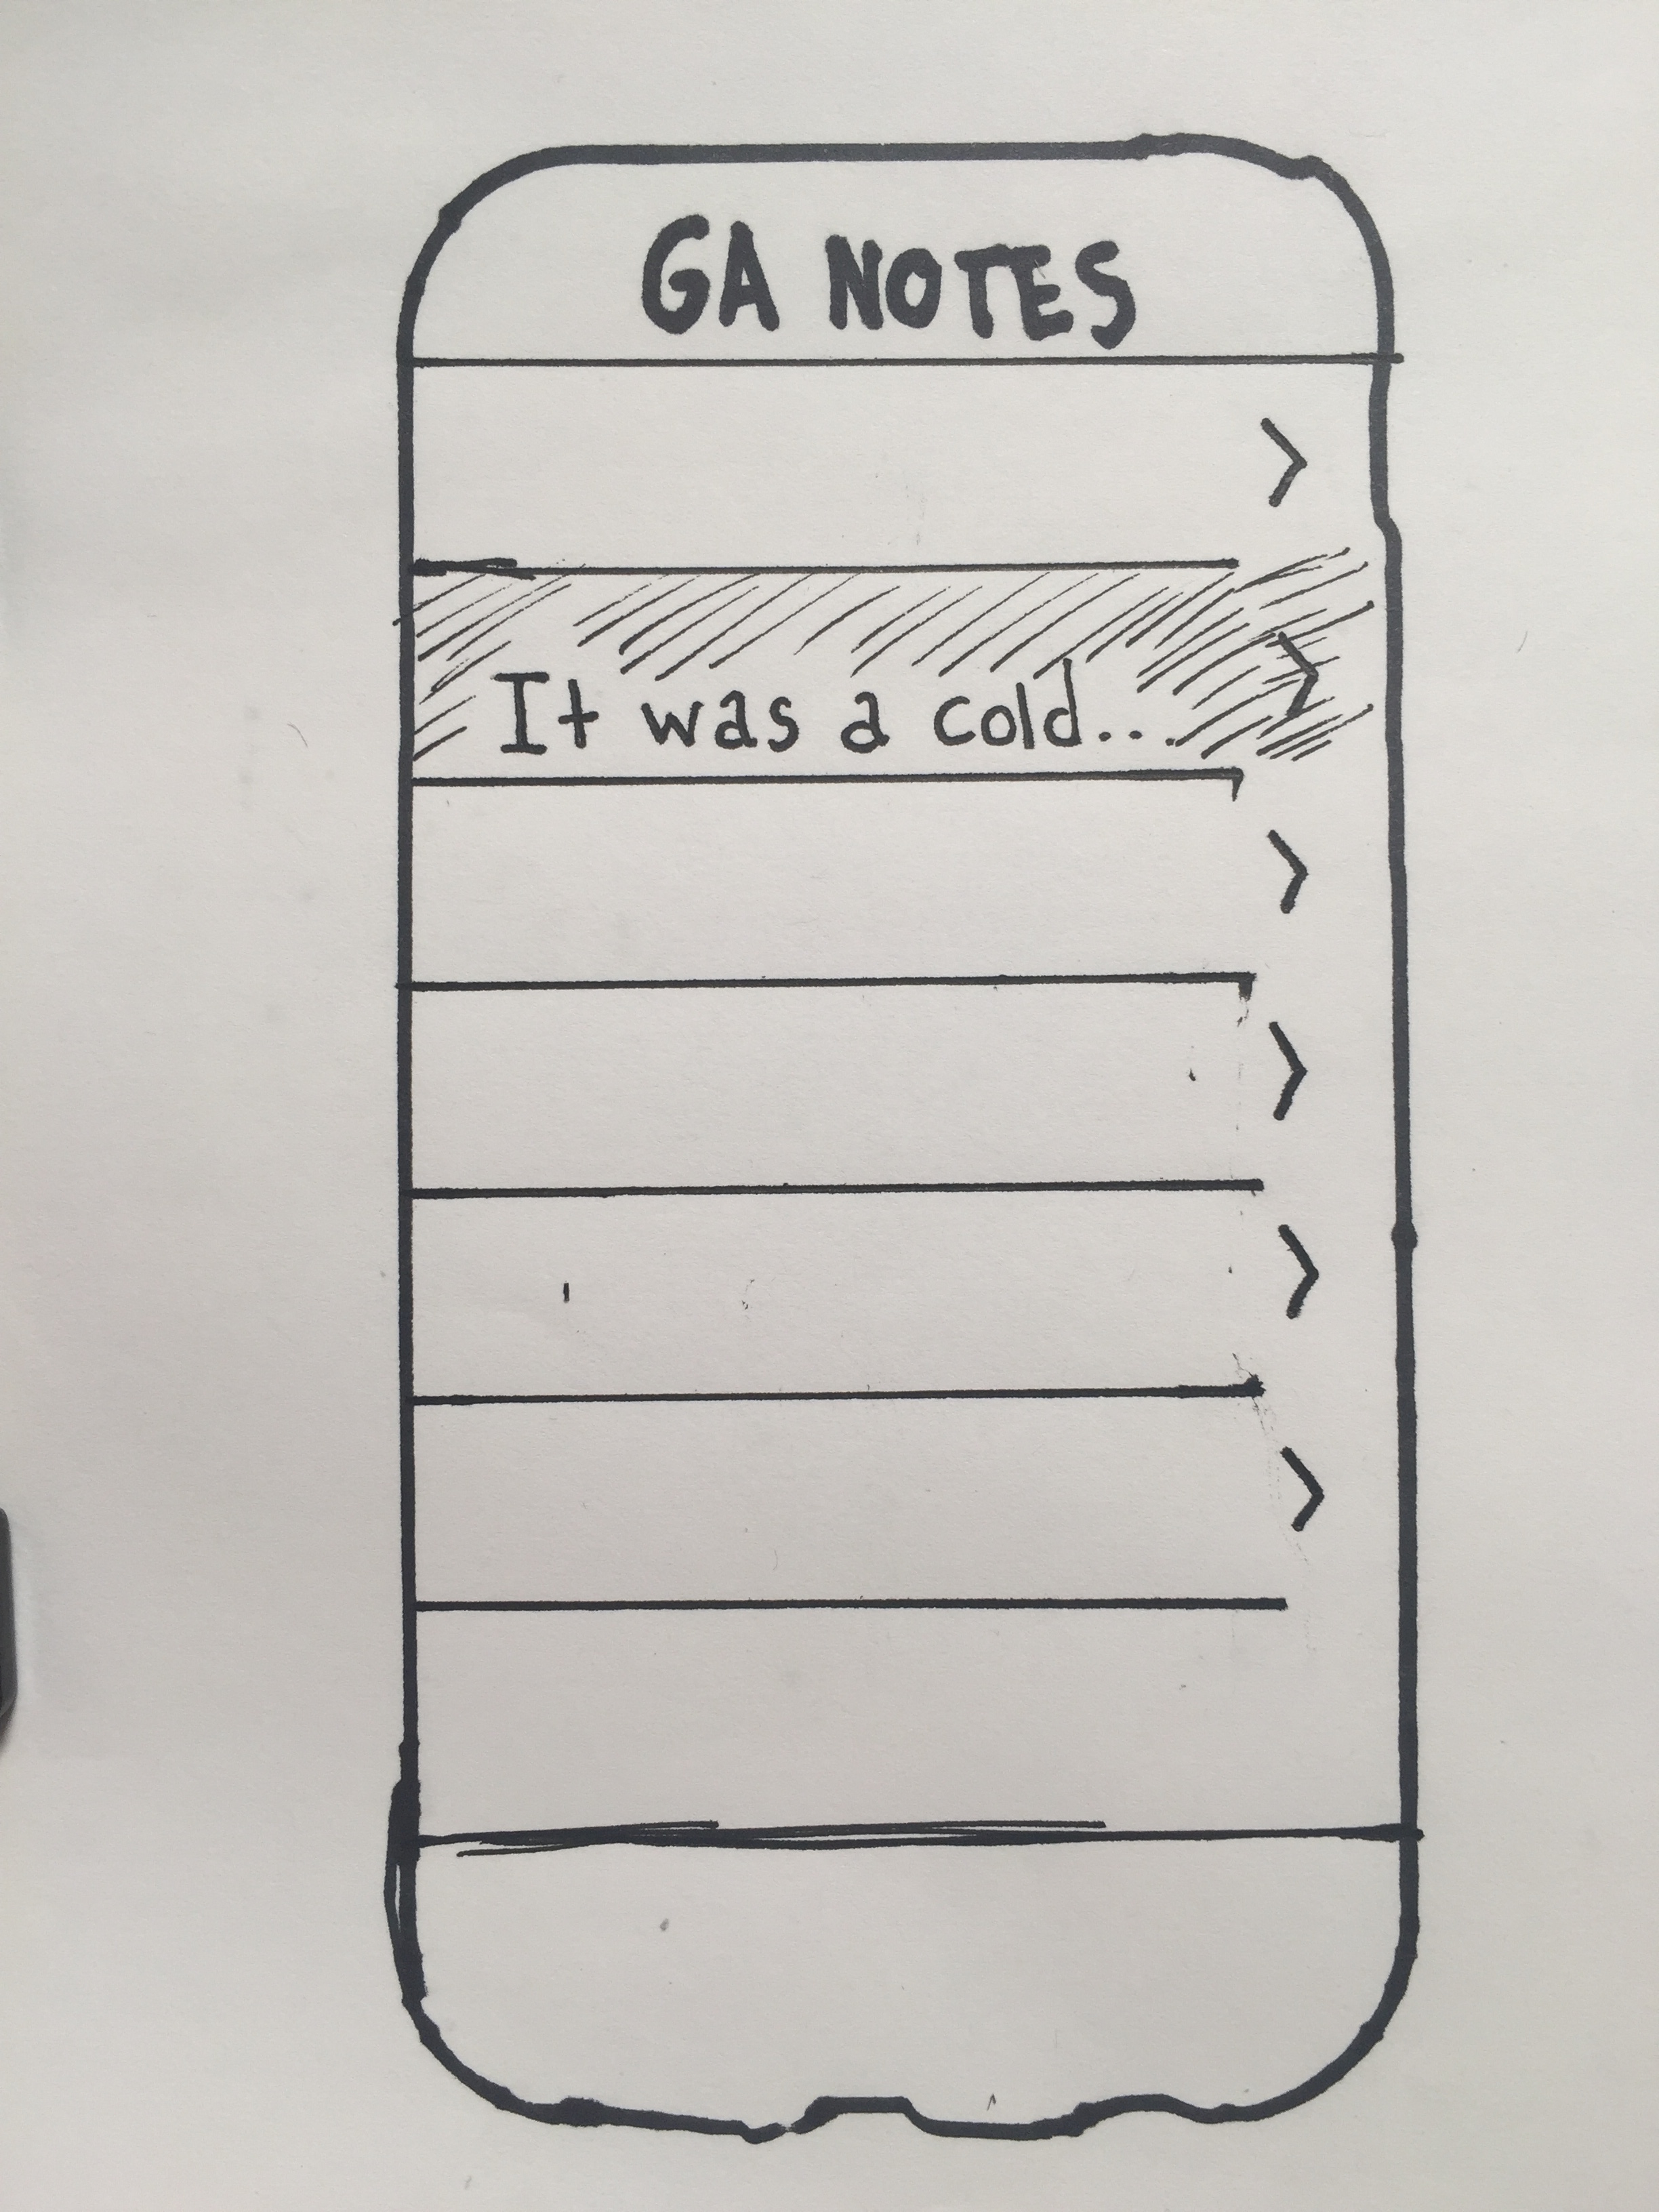 GA NOTES
It was a cold...